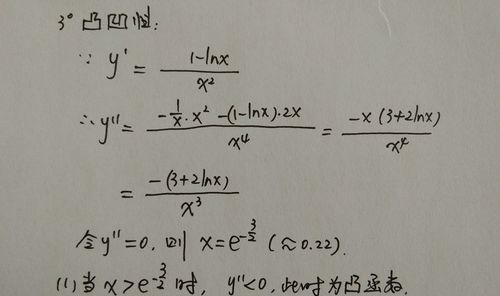 3° 凸凹性:
∵ y' = (1-lnx)/x²
∴ y'' = (-1/x·x² -(1-lnx)·2x)/x⁴ = (-x(3+2lnx))/x⁴
= (-(3+2lnx))/x³
令y''=0, 则 x=e^(-3/2) (≈0.22).
(1) 当 x>e^(-3/2) 时, y''<0, 此时为凸函数.